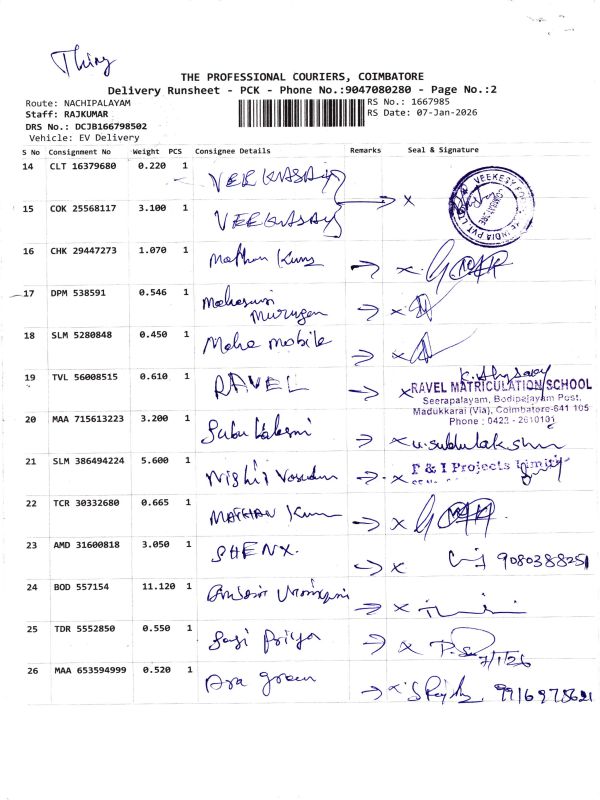 THE PROFESSIONAL COURIERS, COIMBATORE
Delivery Runsheet - PCK - Phone No.:9047080280 - Page No.:2
Route: NACHIPALAYAM
RS No.: 1667985
Staff: RAJKUMAR
RS Date: 07-Jan-2026
DRS No.: DCJB166798502
Vehicle: EV Delivery
S No Consignment No Weight PCS Consignee Details Remarks Seal & Signature
14 CLT 16379680 0.220 1
15 COK 25568117 3.100 1
16 CHK 29447273 1.070 1
17 DPM 538591 0.546 1 Murugan
18 SLM 5280848 0.450 1 Maha mobile
19 TVL 56008515 0.610 1 RAVEL
RAVEL MATRICULATION SCHOOL
Seerapalayam, Bodipalayam Post,
Madukkarai (Via), Coimbatore-641 105
Phone : 0423 - 2610101
20 MAA 715613223 3.200 1 u.subbulakshmi
21 SLM 386494224 5.600 1
P & I Projects Limity
22 TCR 30332680 0.665 1
23 AMD 31600818 3.050 1 9080388251
24 BOD 557154 11.120 1
25 TDR 5552850 0.550 1 Priya 7/1/26
26 MAA 653594999 0.520 1 green 9916975621